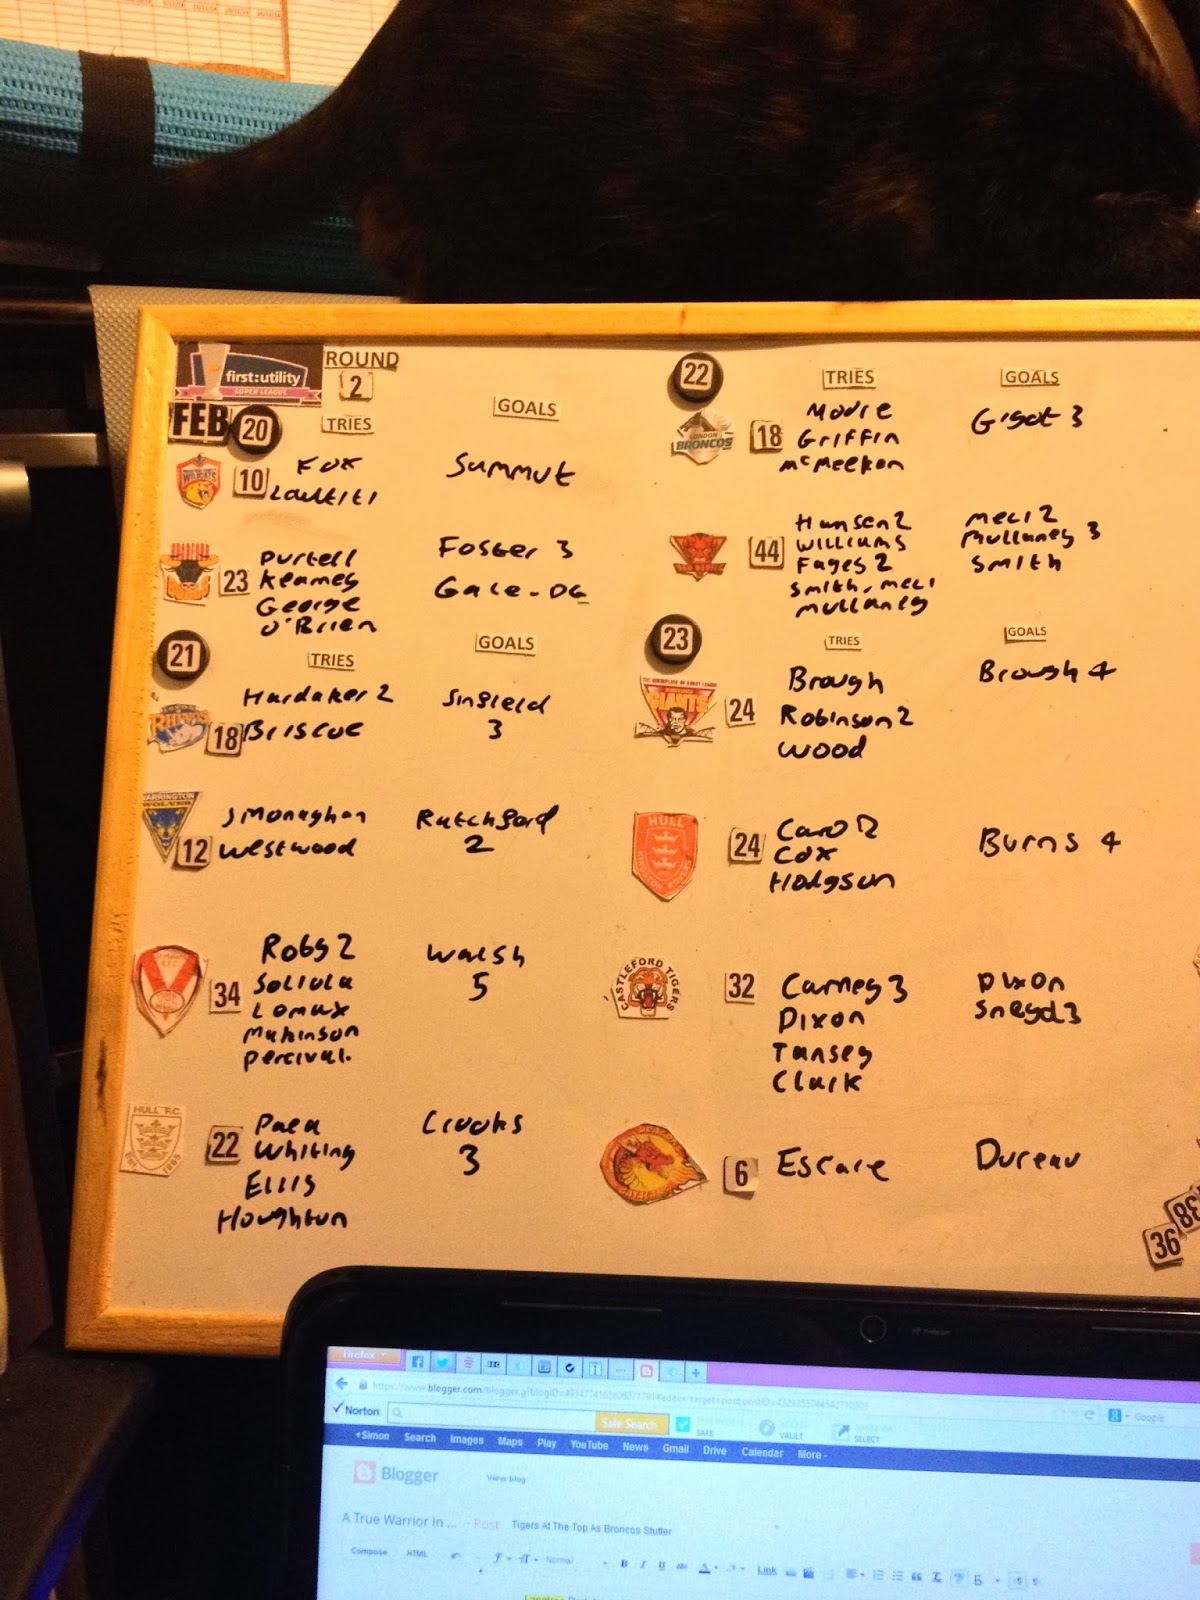 first:utility
SUPER LEAGUE
ROUND
2
FEB 20
TRIES
GOALS
WILDCATS
10
Fox
Lauititi
Sammut
23
Purtell
Kearney
George
O'Brien
Foster 3
Gale - DG
21
TRIES
GOALS
RHINOS
18
Hardaker 2
Briscoe
Sinfield
3
WARRINGTON
WOLVES
12
J Monaghan
Westwood
Ratchford
2
34
Roby 2
Soliola
Lomax
Makinson
Percival.
Walsh
5
HULL F.C.
EST 1865
22
Paea
Whiting
Ellis
Houghton
Crooks
3
22
TRIES
GOALS
LONDON
BRONCOS
18
Moore
Griffin
McMeeken
Gigot 3
44
Hansen 2
Williams
Fages 2
Smith, Meli
Mullaney
Meli 2
Mullaney 3
Smith
23
TRIES
GOALS
GIANTS
24
Brough
Robinson 2
Wood
Brough 4
HULL
KINGSTON ROVERS
24
Caro 2
Cox
Hodgson
Burns 4
CASTLEFORD TIGERS
32
Carney 3
Dixon
Tansey
Clark
Dixon
Sneyd 3
6
Escare
Dureau
38
36
Firefox
https://www.blogger.com/blogger.g?blogID=
Google
Norton
Safe Search
SAFE
VAULT
SELECT
+Simon Search Images Maps Play YouTube News Gmail Drive Calendar More
Blogger
View blog
A True Warrior In ... · Post Tigers At The Top As Broncos Stutter
Compose HTML Normal B I U ABC A Link